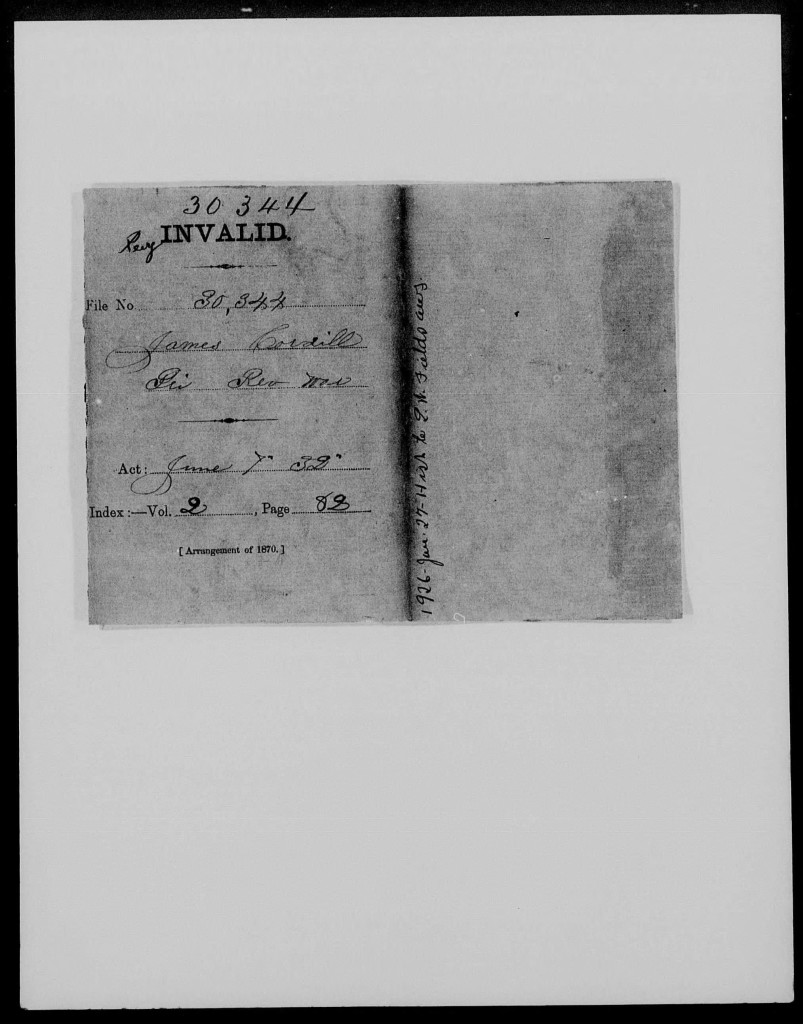 30344
INVALID.
File No 30,344
James Cordill
Pri Rev War
Act: June 7" 32"
Index:—Vol. 2, Page 82
[Arrangement of 1870.]
1926-Jan. 27-Hist to E.W. Fields